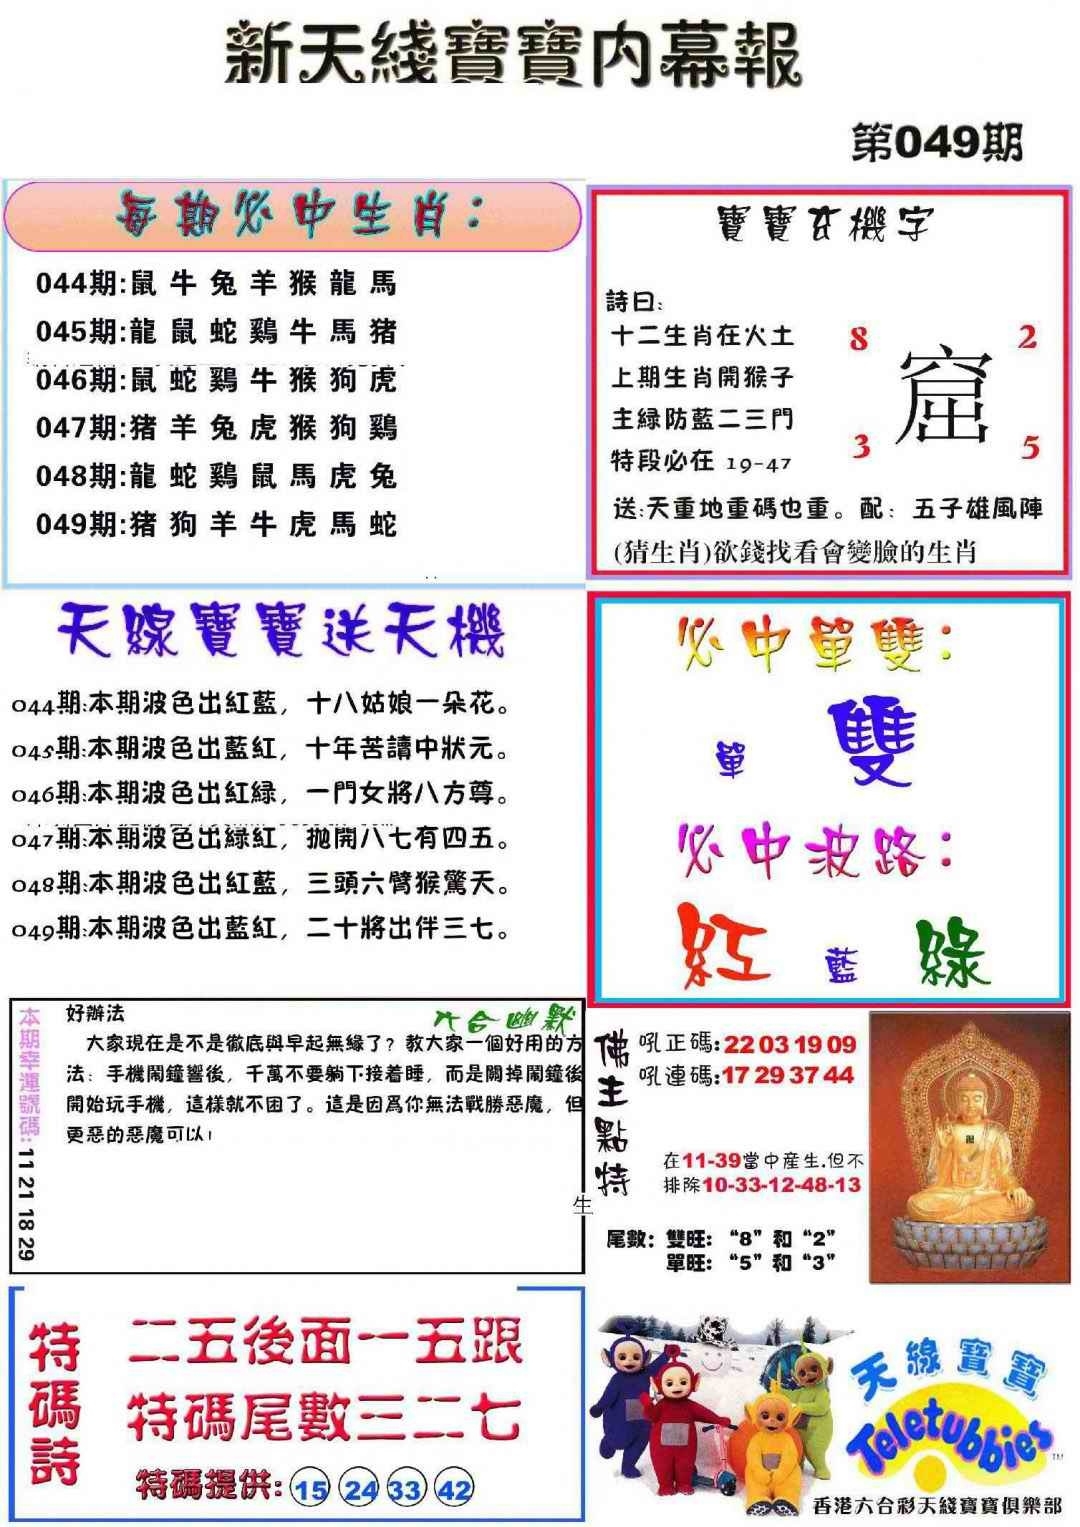 新天綫寶寶内幕報
第049期
每期必中生肖：
044期:鼠牛兔羊猴龍馬
045期:龍鼠蛇鷄牛馬猪
046期:鼠蛇鷄牛猴狗虎
047期:猪羊兔虎猴狗鷄
048期:龍蛇鷄鼠馬虎兔
049期:猪狗羊牛虎馬蛇
寶寶玄機字
詩曰:
十二生肖在火土
上期生肖開猴子
主緑防藍二三門
特段必在 19-47
8
2
窟
3
5
送:天重地重碼也重。配：五子雄風陣
(猜生肖)欲錢找看會變臉的生肖
天線寶寶送天機
044期:本期波色出紅藍，十八姑娘一朵花。
045期:本期波色出藍紅，十年苦讀中狀元。
046期:本期波色出紅緑，一門女將八方尊。
047期:本期波色出緑紅，抛開八七有四五。
048期:本期波色出紅藍，三頭六臂猴驚天。
049期:本期波色出藍紅，二十將出伴三七。
必中單雙：
單 雙
必中波路：
紅 藍 綠
本期幸運號碼:11 21 18 29
六合幽默
好辦法
大家現在是不是徹底與早起無緣了？教大家一個好用的方
法：手機鬧鐘響後，千萬不要躺下接着睡，而是關掉鬧鐘後
開始玩手機，這樣就不困了。這是因爲你無法戰勝惡魔，但
更惡的惡魔可以！
生
佛主點特
吼正碼:22 03 19 09
吼連碼:17 29 37 44
在11-39當中産生.但不
排除10-33-12-48-13
尾數：雙旺：“8”和“2”
單旺：“5”和“3”
特碼詩
二五後面一五跟
特碼尾數三二七
特碼提供: 15 24 33 42
天線寶寶
Teletubbies
TM
香港六合彩天綫寶寶俱樂部